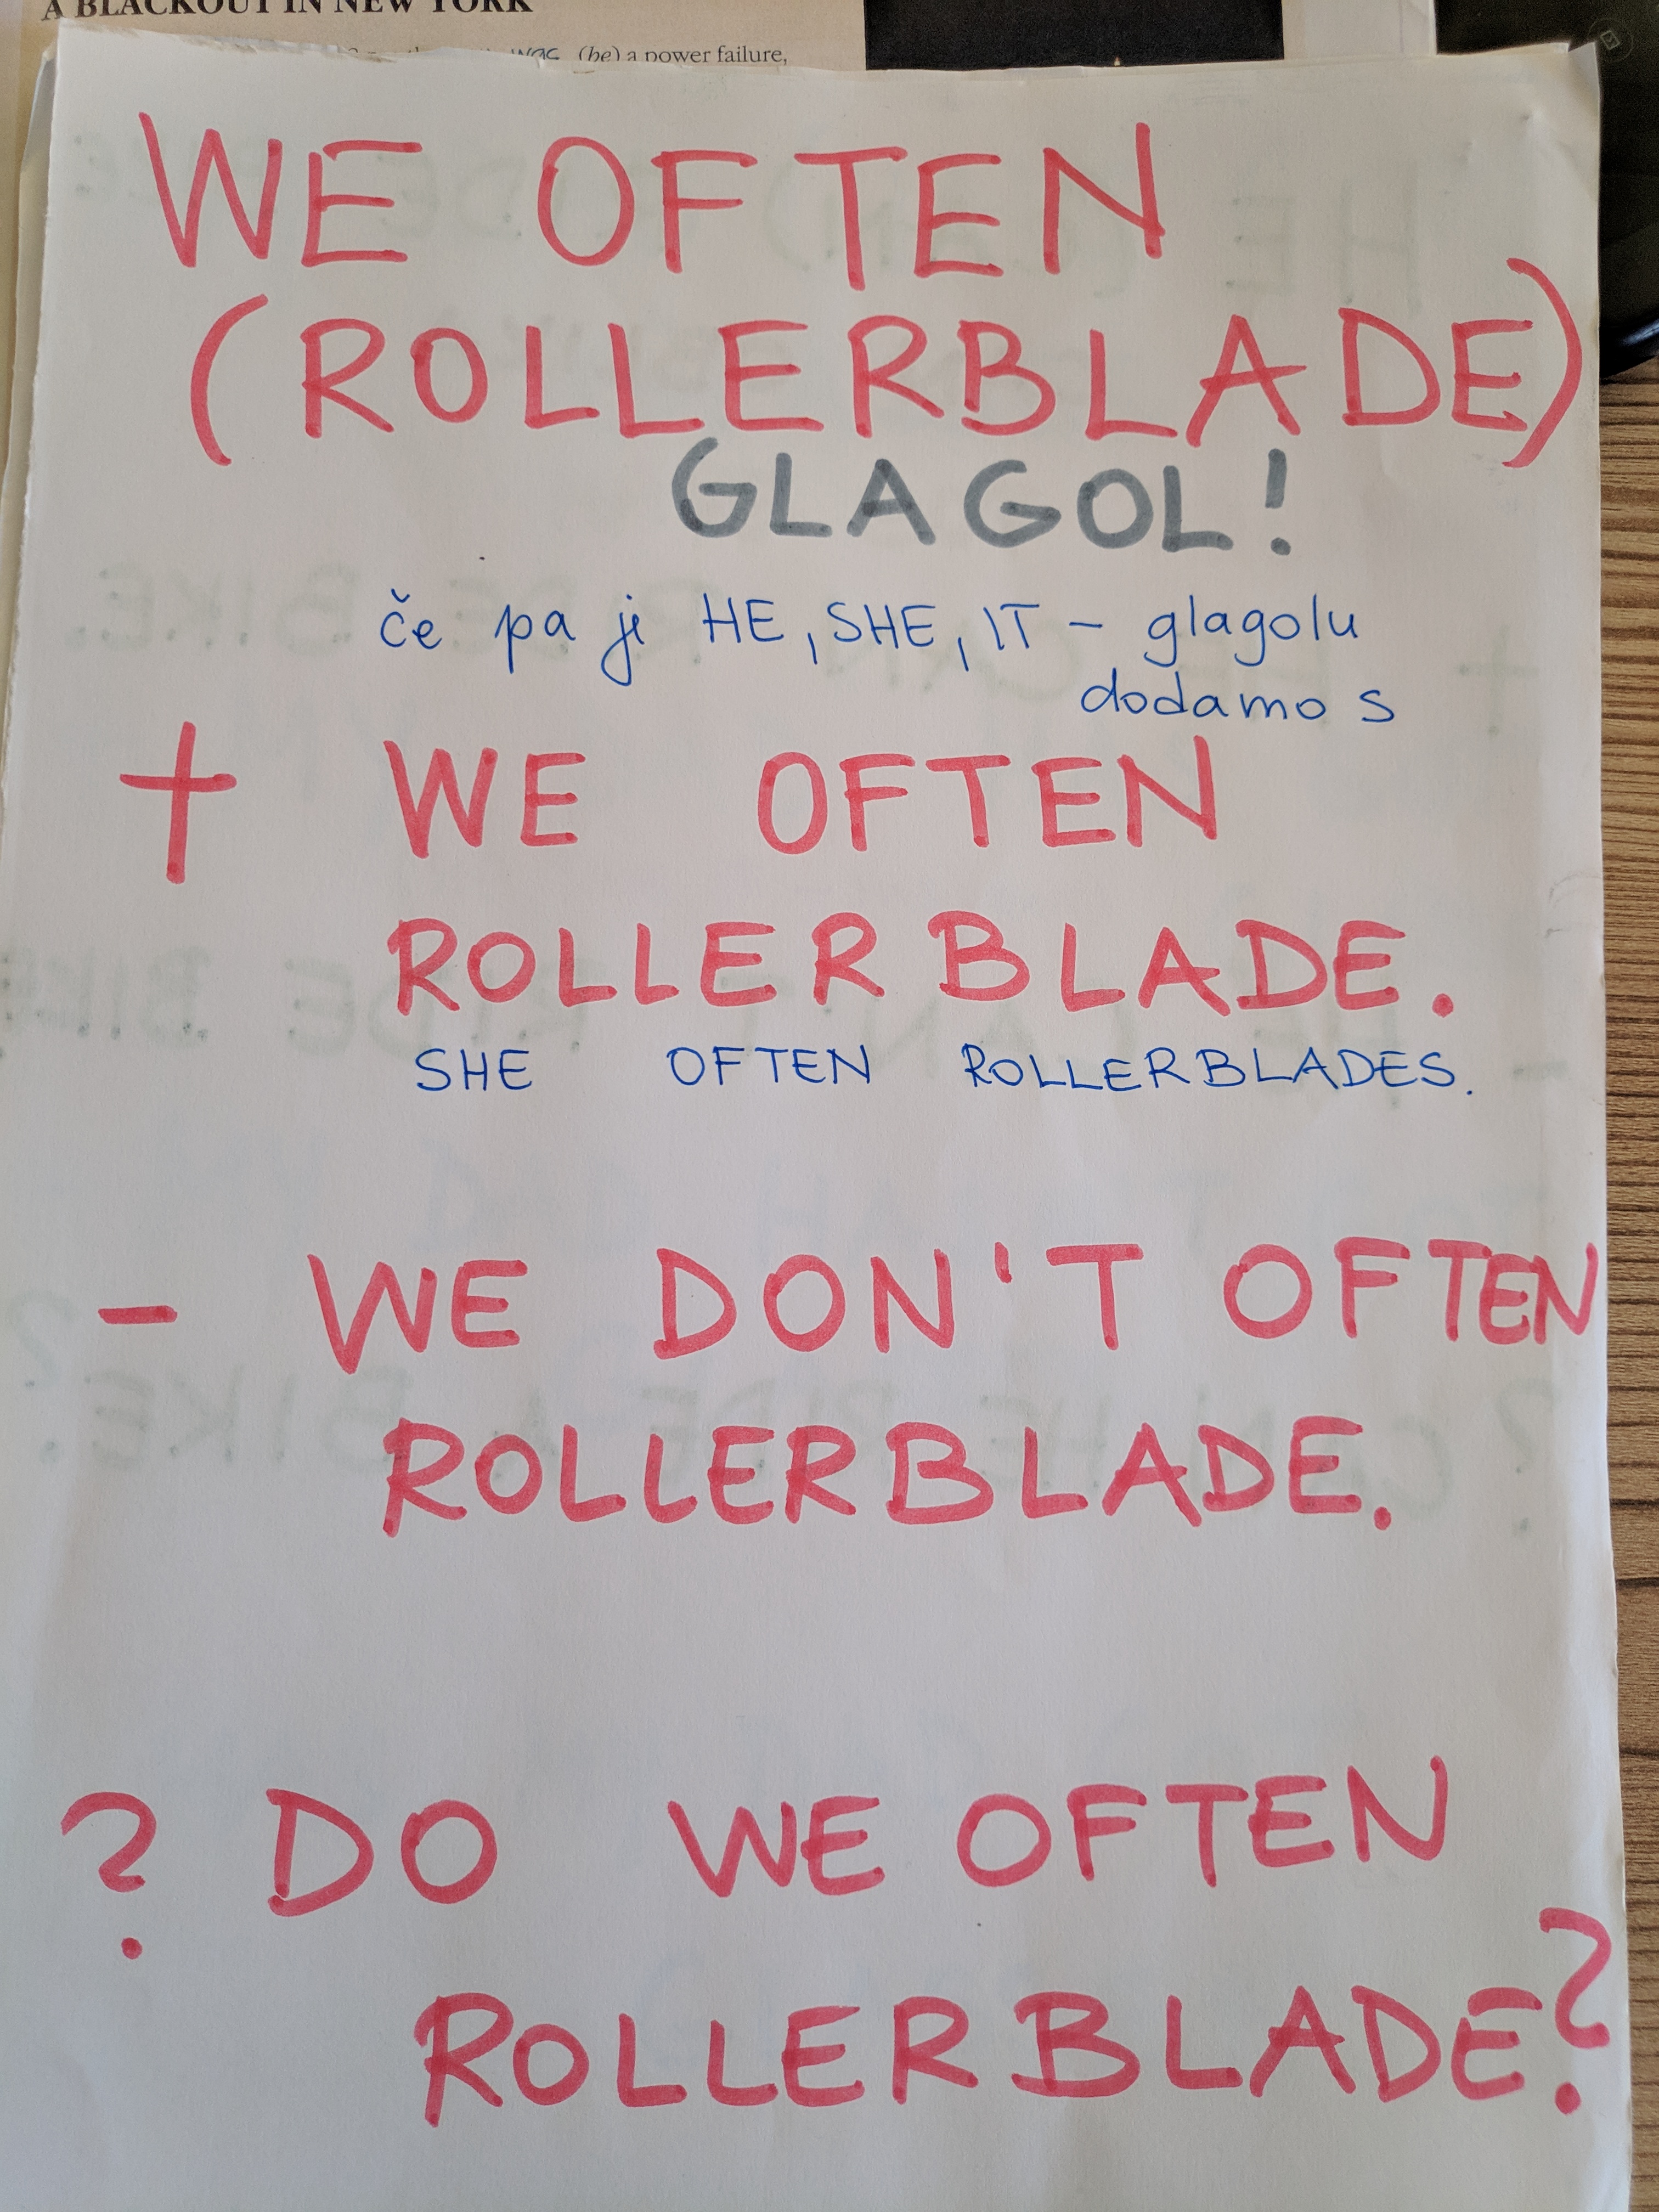 A BLACKOUT IN NEW YORK
was (be) a power failure,
WE OFTEN
(ROLLERBLADE)
GLAGOL!
če pa je HE, SHE, IT - glagolu
dodamo s
+ WE OFTEN
ROLLERBLADE.
SHE OFTEN ROLLERBLADES.
- WE DON'T OFTEN
ROLLERBLADE.
? DO WE OFTEN
ROLLERBLADE?